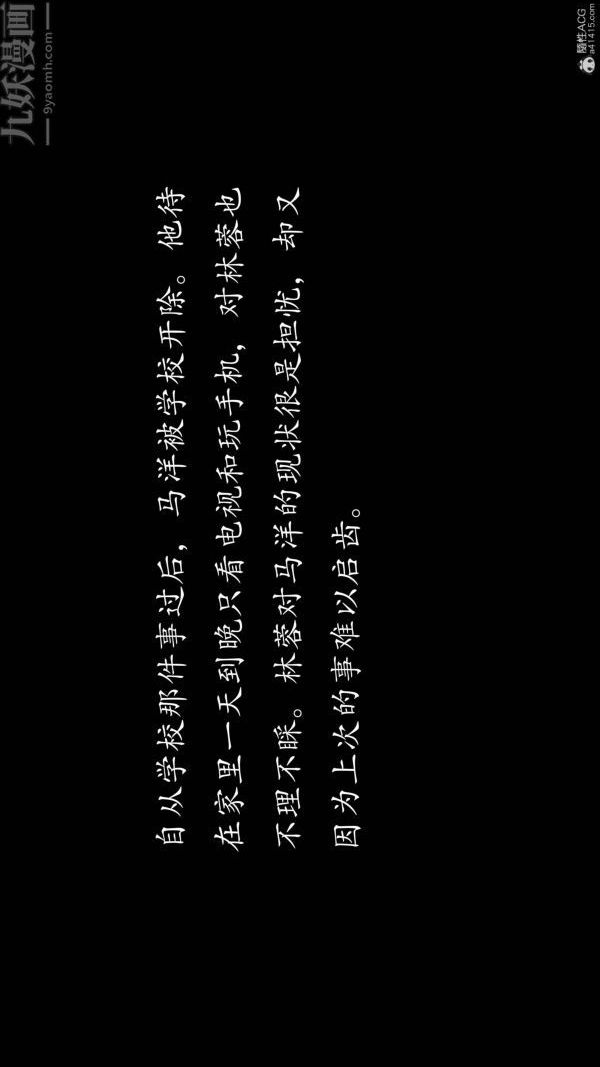 自从学校那件事过后，马洋被学校开除。他待
在家里一天到晚只看电视和玩手机，对林蓉也
不理不睬。林蓉对马洋的现状很是担忧，却又
因为上次的事难以启齿。
九妖漫画
9yaomh.com
隨性ACG
a41415.com